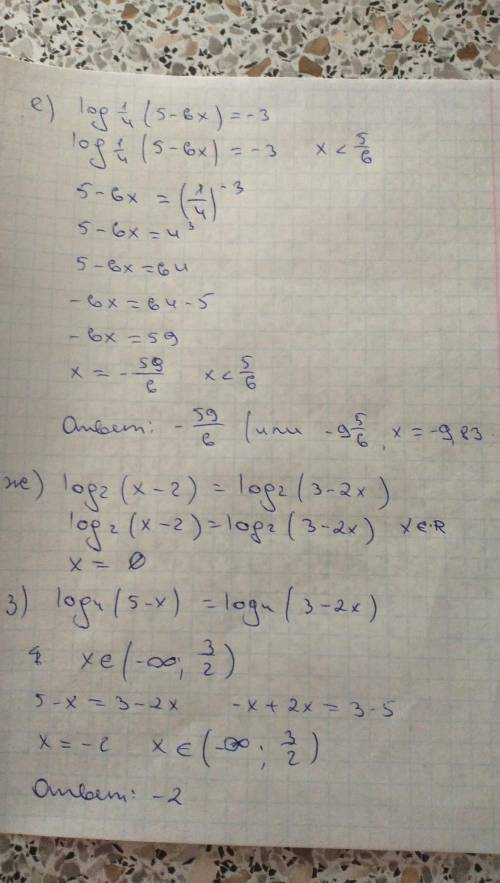 е) log 1/4 (5-6x) = -3
log 1/4 (5-6x) = -3 x < 5/6
5-6x = (1/4)^-3
5-6x = 4³
5-6x = 64
-6x = 64-5
-6x = 59
x = -59/6 x < 5/6
Ответ: -59/6 (или -9 5/6, x = -9,83
же) log2 (x-2) = log2 (3-2x)
log2 (x-2) = log2 (3-2x) x∈R
x = Ø
з) log4 (5-x) = log4 (3-2x)
x∈(-∞; 3/2)
5-x = 3-2x -x+2x = 3-5
x = -2 x∈(-∞; 3/2)
Ответ: -2